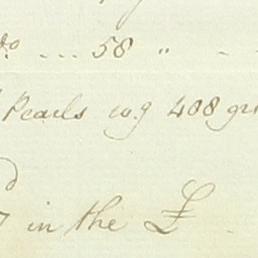 do ... 58 "
Pearls wg 408 gr
in the £